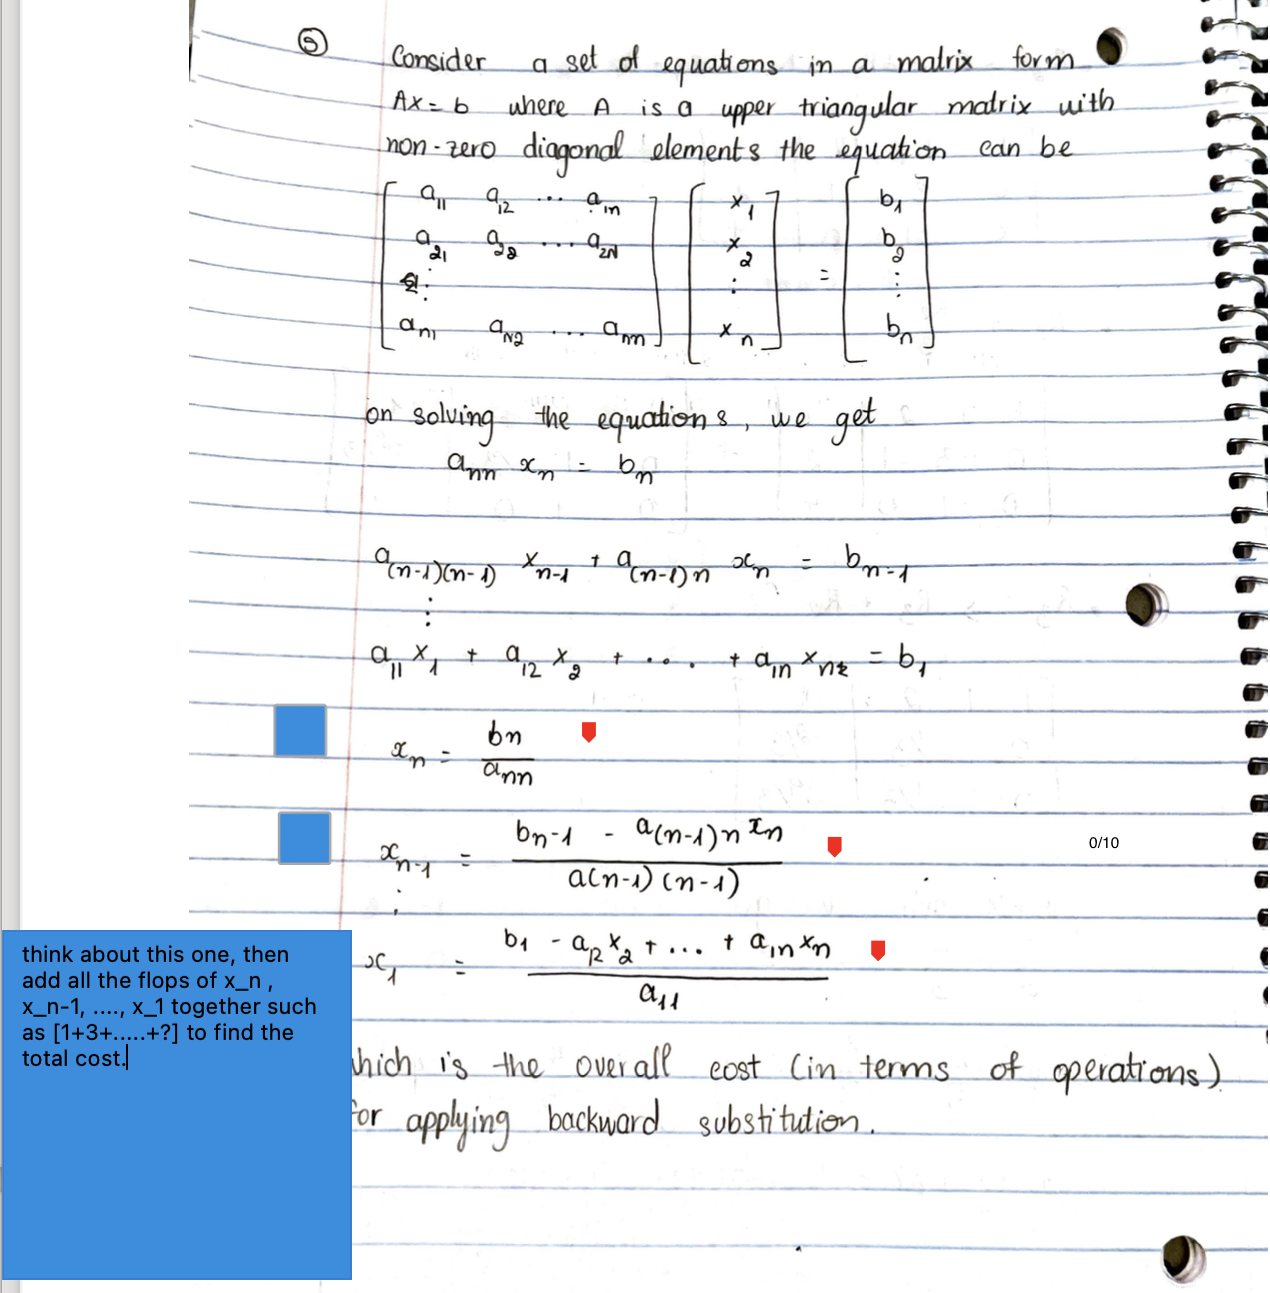 ⑤ Consider a set of equations in a matrix form
Ax = b where A is a upper triangular matrix with
non-zero diagonal elements the equation can be
[ a₁₁ a₁₂ ... a₁n ] [ x₁ ] [ b₁ ]
[ a₂₁ a₂₂ ... a₂N ] [ x₂ ] [ b₂ ]
⋮ ⋮ = ⋮
[ an₁ aN₂ ... ann ] [ xn ] [ bn ]
on solving the equations, we get
ann xn = bn
a(n-1)(n-1) xn-1 + a(n-1)n xn = bn-1
⋮
a₁₁ x₁ + a₁₂ x₂ + .... + a₁n xn = b₁
xn = bn / ann
xn-1 = bn-1 - a(n-1)n xn / a(n-1)(n-1)
0/10
⋮
x₁ = b₁ - a₁₂ x₂ + ... + a₁n xn / a₁₁
think about this one, then
add all the flops of x_n ,
x_n-1, ...., x_1 together such
as [1+3+.....+?] to find the
total cost.
hich is the overall cost (in terms of operations)
for applying backward substitution.